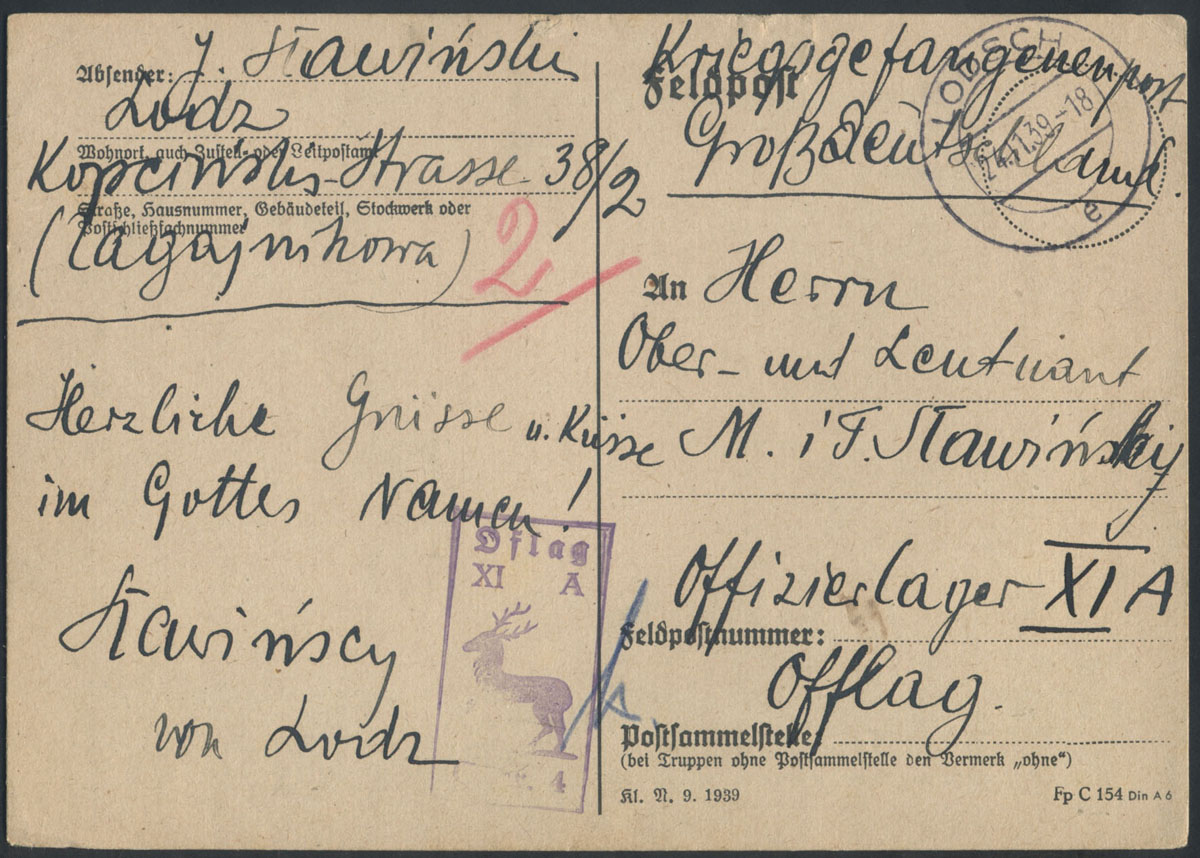 Absender: J. Stawiński
Lodz
Wohnort, auch Zustell- oder Leitpostamt
Kopcinski-Strasse 38/2
Straße, Hausnummer, Gebäudeteil, Stockwerk oder
Postschließfachnummer
(Zagajnikowa)
2
Herzliche Grüsse u. Küsse
im Gottes Namen!
Stawińscy
von Lodz
Oflag
XI A
4
Kriegsgefangenenpost
Feldpost
Großdeutschland.
LODSCH
24.11.39-18
e
An Herrn
Ober- und Leutnant
M. i F. Stawińsky
Offizierlager XI A
Feldpostnummer:
Offlag.
Postsammelstelle
(bei Truppen ohne Postsammelstelle den Vermerk „ohne“)
Kl. N. 9. 1939
Fp C 154 Din A 6